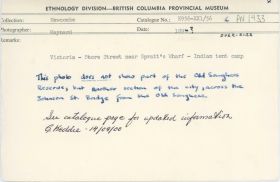 ETHNOLOGY DIVISION—BRITISH COLUMBIA PROVINCIAL MUSEUM
Collection: Newcombe Catalogue No.: PN 1933
Photographer: Maynard Date:
Remarks:
Victoria - Store Street near Sproat's Wharf - Indian tent camp
This photo does not show part of the Old Songhees
Reserve, but another section of the city across the
Johnson St. Bridge from the Old Songhees.
See catalogue page for updated information.
G Keddie - 19/09/00